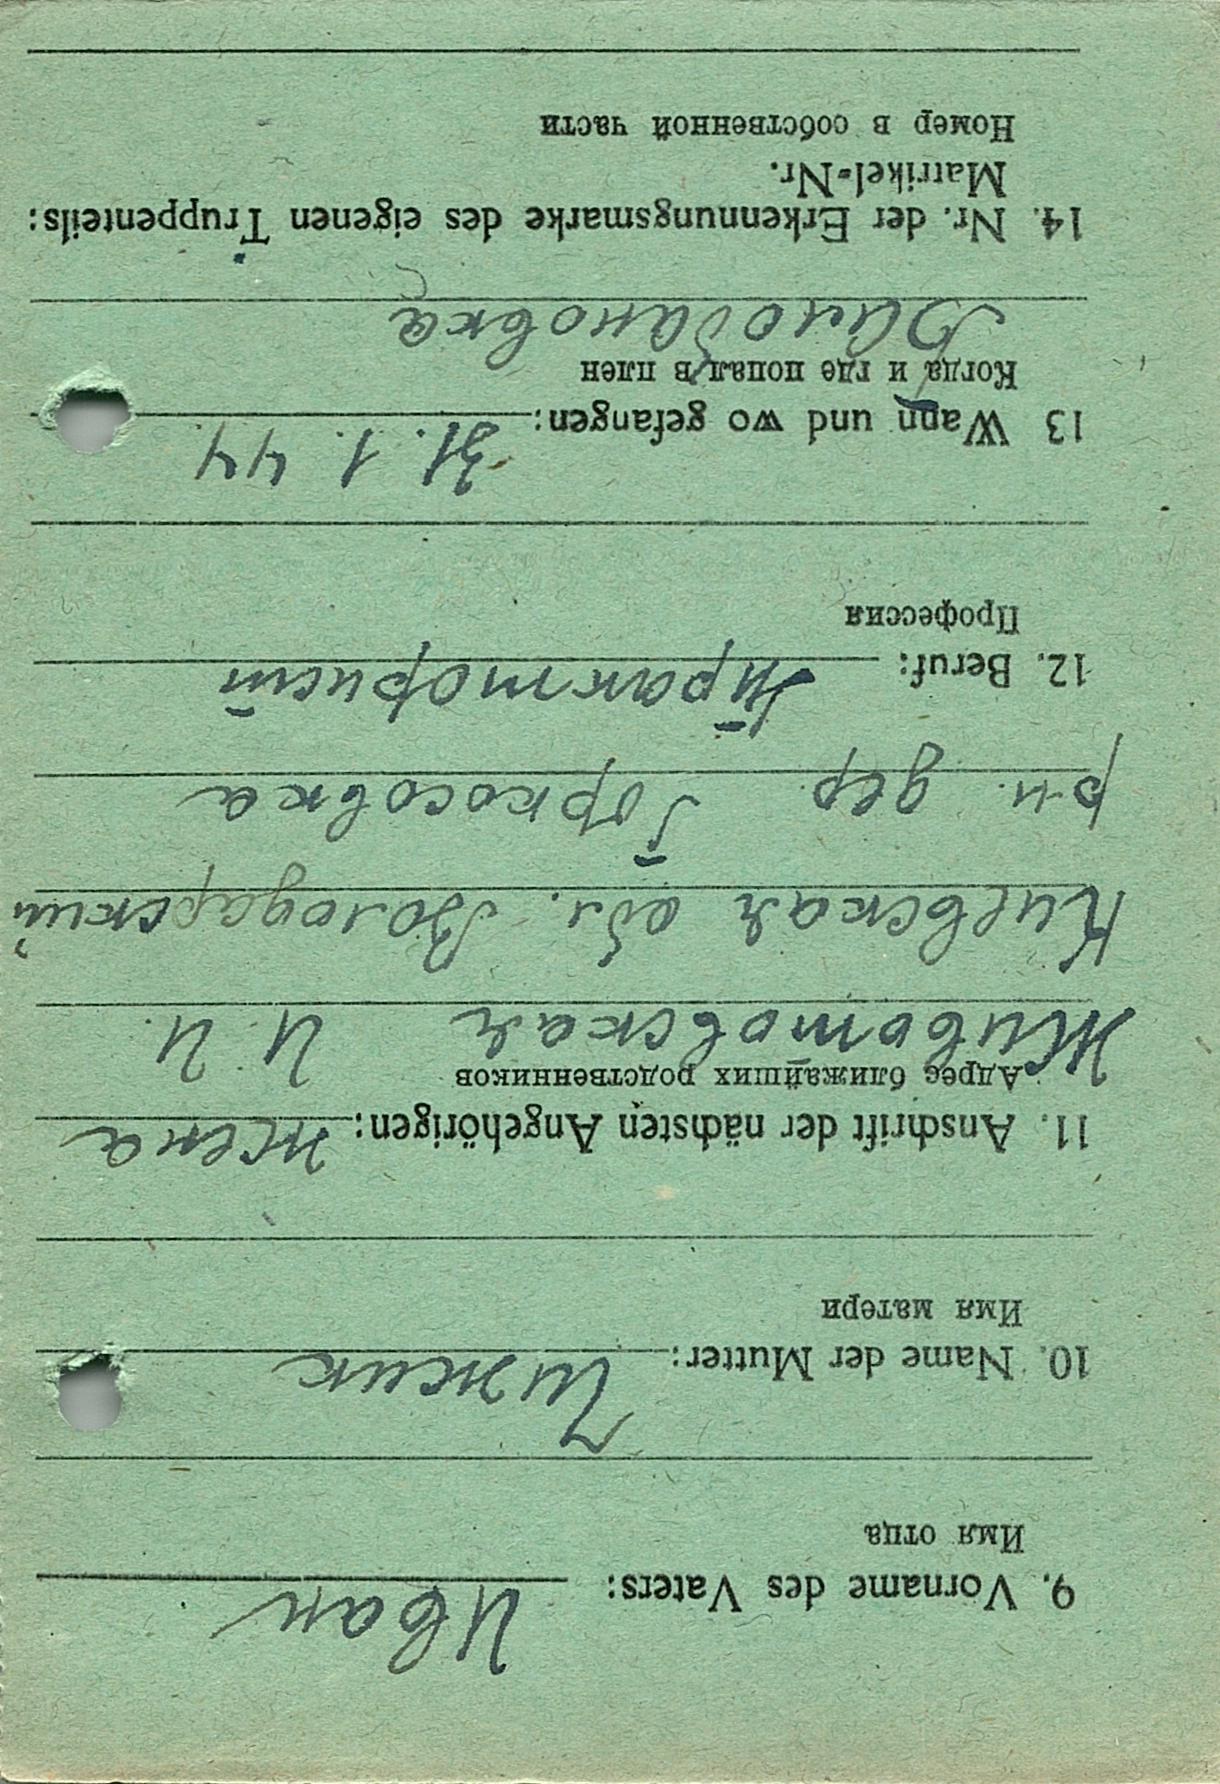 9. Vorname des Vaters: Иван
Имя отца
10. Name der Mutter: Чижик
Имя матери
11. Anschrift der nächsten Angehörigen: жена
Адрес ближайших родственников
Животовская И. И.
Киевская обл. Володарский
р-н. дер. Горкосовка
12. Beruf: Трактарист
Профессия
13 Wann und wo gefangen: 31. 1. 44
Когда и где попал в плен
14. Nr. der Erkennungsmarke des eigenen Truppenteils:
Matrikel-Nr.
Номер в собственной части